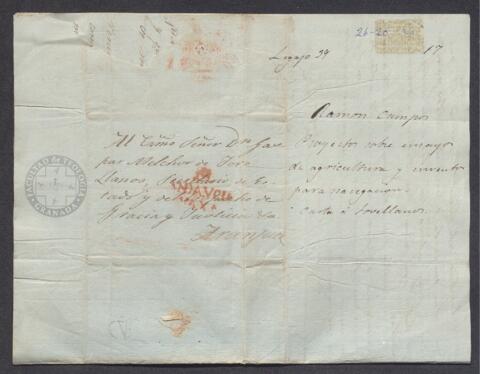 26-20
Legajo 39 17
Ramon Campos
Proyectos sobre ensayos
de agricultura y inventos
para navegacion.
Carta á Jovellanos.
Al Exmo Señor Dn Gas
par Melchor de Jove
Llanos, Secretario de Es
tado y del Despacho de
Gracia y Justicia &a
Aranjuez
FACULTAD DE TEOLOGIA
GRANADA